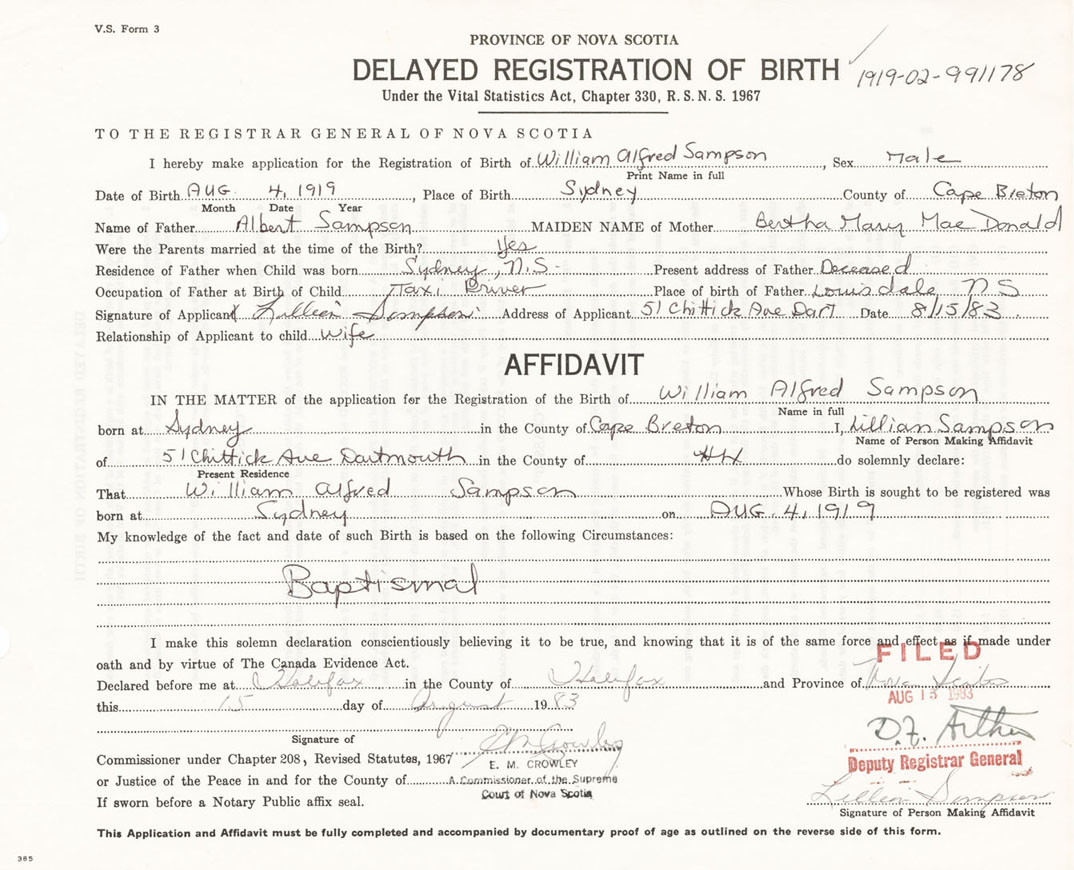 V.S. Form 3
PROVINCE OF NOVA SCOTIA
DELAYED REGISTRATION OF BIRTH 1919-02-991178
Under the Vital Statistics Act, Chapter 330, R.S.N.S. 1967
TO THE REGISTRAR GENERAL OF NOVA SCOTIA
I hereby make application for the Registration of Birth of William Alfred Sampson, Sex Male
Print Name in full
Date of Birth AUG. 4, 1919, Place of Birth Sydney County of Cape Breton
Month Date Year
Name of Father Albert Sampson MAIDEN NAME of Mother Bertha Mary Mac Donald
Were the Parents married at the time of the Birth? Yes
Residence of Father when Child was born Sydney, N.S. Present address of Father Deceased
Occupation of Father at Birth of Child Taxi Driver Place of birth of Father Louisdale N S
Signature of Applicant X Lillian Sampson Address of Applicant 51 Chittick Ave Dart Date 8/15/83
Relationship of Applicant to child wife
AFFIDAVIT
IN THE MATTER of the application for the Registration of the Birth of William Alfred Sampson
Name in full
born at Sydney in the County of Cape Breton I, Lillian Sampson
Name of Person Making Affidavit
of 51 Chittick Ave Dartmouth in the County of HX do solemnly declare:
Present Residence
That William Alfred Sampson Whose Birth is sought to be registered was
born at Sydney on AUG. 4, 1919
My knowledge of the fact and date of such Birth is based on the following Circumstances:
Baptismal
I make this solemn declaration conscientiously believing it to be true, and knowing that it is of the same force and effect as if made under
FILED
oath and by virtue of The Canada Evidence Act.
Declared before me at Halifax in the County of Halifax and Province of Nova Scotia
AUG 15 1983
this 15 day of August 1983
Signature of
Commissioner under Chapter 208, Revised Statutes, 1967 E M Crowley
E. M. CROWLEY
Deputy Registrar General
or Justice of the Peace in and for the County of A Commissioner of the Supreme
Court of Nova Scotia
If sworn before a Notary Public affix seal.
Lillian Sampson
Signature of Person Making Affidavit
This Application and Affidavit must be fully completed and accompanied by documentary proof of age as outlined on the reverse side of this form.
385